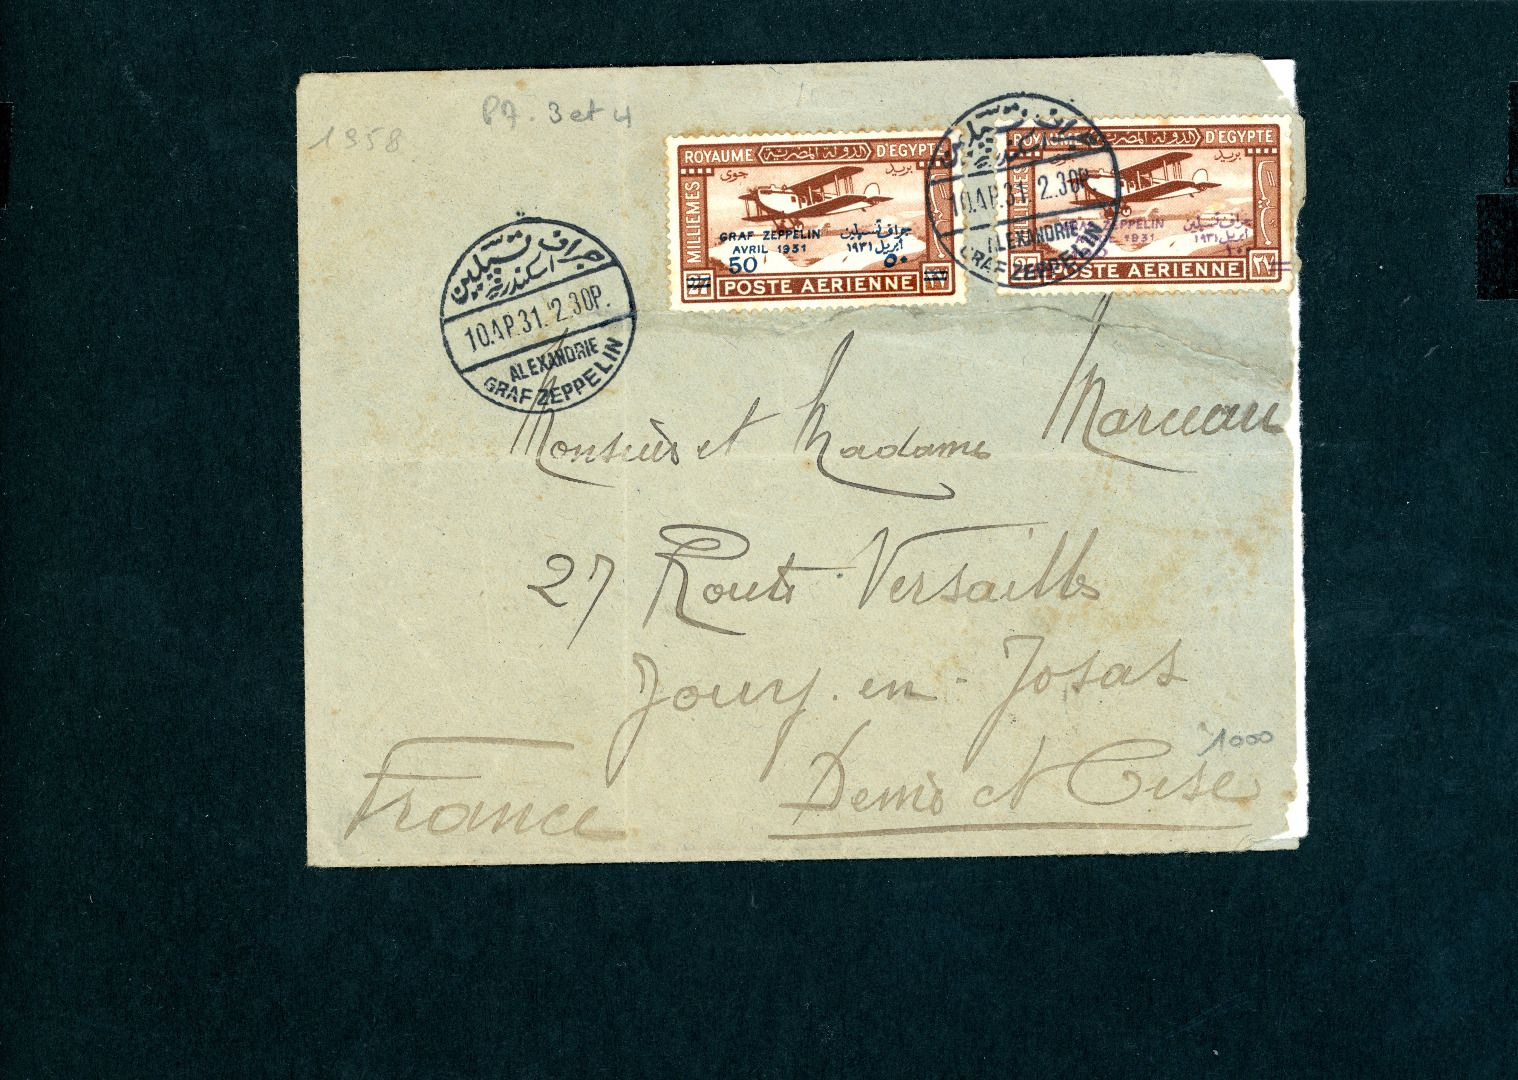 1958
PA. 3 et 4
ROYAUME الدولة المصرية D'EGYPTE
جوى بريد
MILLIEMES
GRAF ZEPPELIN جراف تسبلين
AVRIL 1931 أبريل ١٩٣١
50 ٥٠
27 POSTE AERIENNE ٢٧
ROYAUME الدولة المصرية D'EGYPTE
بريد
MILLIEMES
ZEPPELIN جراف تسبلين
1931 أبريل ١٩٣١
27 POSTE AERIENNE ٢٧
جراف تسبلين
اسكندرية
10.AP.31. 2.30P.
ALEXANDRIE
GRAF ZEPPELIN
جراف تسبلين
اسكندرية
10.AP.31. 2.30P.
ALEXANDRIE
GRAF ZEPPELIN
Monsieur et Madame Marceau
27 Route Versailles
Jouy-en-Josas
Seine et Oise
France
1000